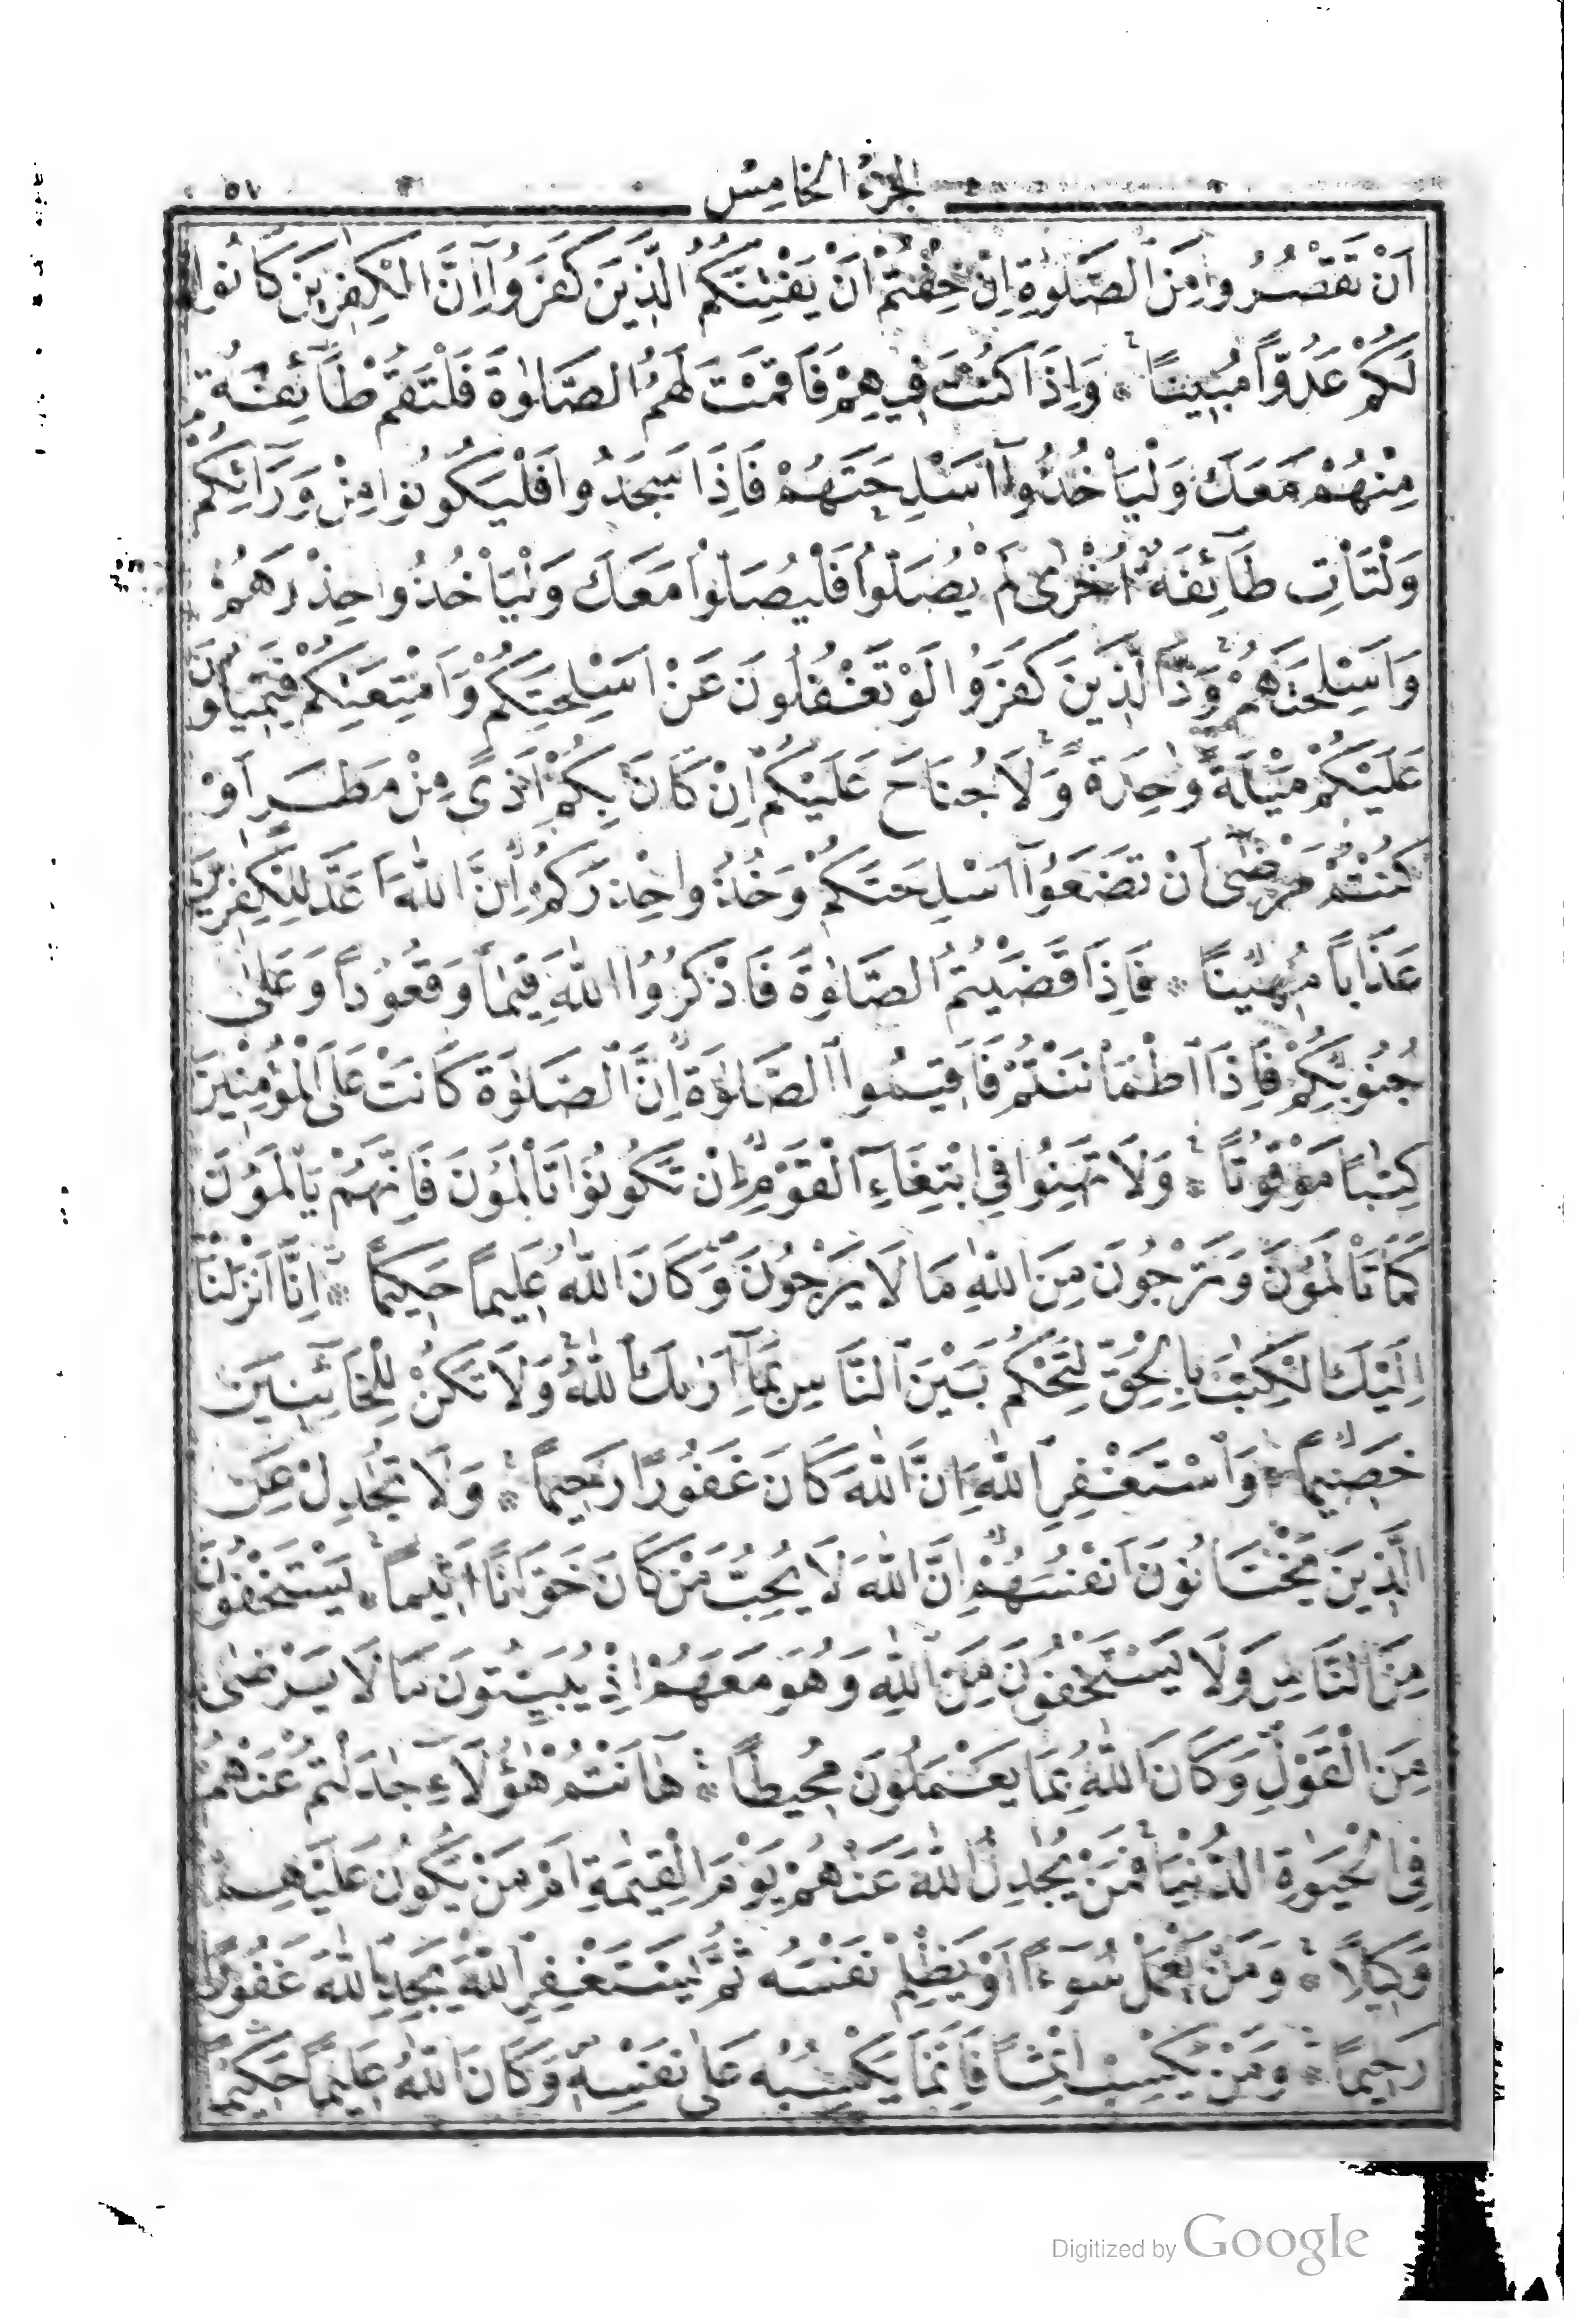 الجزء الخامس
٥١
اَنْ تَقْصُرُوا مِنَ الصَّلٰوةِ اِنْ خِفْتُمْ اَنْ يَفْتِنَكُمُ الَّذِينَ كَفَرُوا اِنَّ الْكٰفِرِينَ كَانُوا
لَكُمْ عَدُوًّا مُبِينًا * وَاِذَا كُنْتَ فِيهِمْ فَاَقَمْتَ لَهُمُ الصَّلٰوةَ فَلْتَقُمْ طَآئِفَةٌ
مِنْهُمْ مَعَكَ وَلْيَاْخُذُوآ اَسْلِحَتَهُمْ فَاِذَا سَجَدُوا فَلْيَكُونُوا مِنْ وَرَآئِكُمْ
وَلْتَاْتِ طَآئِفَةٌ اُخْرٰى لَمْ يُصَلُّوا فَلْيُصَلُّوا مَعَكَ وَلْيَاْخُذُوا حِذْرَهُمْ
وَاَسْلِحَتَهُمْ وَدَّ الَّذِينَ كَفَرُوا لَوْ تَغْفُلُونَ عَنْ اَسْلِحَتِكُمْ وَاَمْتِعَتِكُمْ فَيَمِيلُونَ
عَلَيْكُمْ مَيْلَةً وٰاحِدَةً وَلَا جُنَاحَ عَلَيْكُمْ اِنْ كَانَ بِكُمْ اَذًى مِنْ مَطَرٍ اَوْ
كُنْتُمْ مَرْضٰى اَنْ تَضَعُوآ اَسْلِحَتَكُمْ وَخُذُوا حِذْرَكُمْ اِنَّ اللّٰهَ اَعَدَّ لِلْكٰفِرِينَ
عَذَابًا مُهِينًا * فَاِذَا قَضَيْتُمُ الصَّلٰوةَ فَاذْكُرُوا اللّٰهَ قِيٰمًا وَقُعُودًا وَعَلٰى
جُنُوبِكُمْ فَاِذَا اطْمَاْنَنْتُمْ فَاَقِيمُوا الصَّلٰوةَ اِنَّ الصَّلٰوةَ كَانَتْ عَلَى الْمُؤْمِنِينَ
كِتٰبًا مَوْقُوتًا * وَلَا تَهِنُوا فِى ابْتِغَآءِ الْقَوْمِ اِنْ تَكُونُوا تَاْلَمُونَ فَاِنَّهُمْ يَاْلَمُونَ
كَمَا تَاْلَمُونَ وَتَرْجُونَ مِنَ اللّٰهِ مَا لَا يَرْجُونَ وَكَانَ اللّٰهُ عَلِيمًا حَكِيمًا * اِنَّا اَنْزَلْنَا
اِلَيْكَ الْكِتٰبَ بِالْحَقِّ لِتَحْكُمَ بَيْنَ النَّاسِ بِمَآ اَرٰىكَ اللّٰهُ وَلَا تَكُنْ لِلْخَآئِنِينَ
خَصِيمًا * وَاسْتَغْفِرِ اللّٰهَ اِنَّ اللّٰهَ كَانَ غَفُورًا رَحِيمًا * وَلَا تُجَادِلْ عَنِ
الَّذِينَ يَخْتَانُونَ اَنْفُسَهُمْ اِنَّ اللّٰهَ لَا يُحِبُّ مَنْ كَانَ خَوَّانًا اَثِيمًا * يَسْتَخْفُونَ
مِنَ النَّاسِ وَلَا يَسْتَخْفُونَ مِنَ اللّٰهِ وَهُوَ مَعَهُمْ اِذْ يُبَيِّتُونَ مَا لَا يَرْضٰى
مِنَ الْقَوْلِ وَكَانَ اللّٰهُ بِمَا يَعْمَلُونَ مُحِيطًا * هَآ اَنْتُمْ هٰٓؤُلَآءِ جٰدَلْتُمْ عَنْهُمْ
فِى الْحَيٰوةِ الدُّنْيَا فَمَنْ يُجٰدِلُ اللّٰهَ عَنْهُمْ يَوْمَ الْقِيٰمَةِ اَمْ مَنْ يَكُونُ عَلَيْهِمْ
وَكِيلًا * وَمَنْ يَعْمَلْ سُوٓءًا اَوْ يَظْلِمْ نَفْسَهُ ثُمَّ يَسْتَغْفِرِ اللّٰهَ يَجِدِ اللّٰهَ غَفُورًا
رَحِيمًا * وَمَنْ يَكْسِبْ اِثْمًا فَاِنَّمَا يَكْسِبُهُ عَلٰى نَفْسِهِ وَكَانَ اللّٰهُ عَلِيمًا حَكِيمًا
Digitized by Google